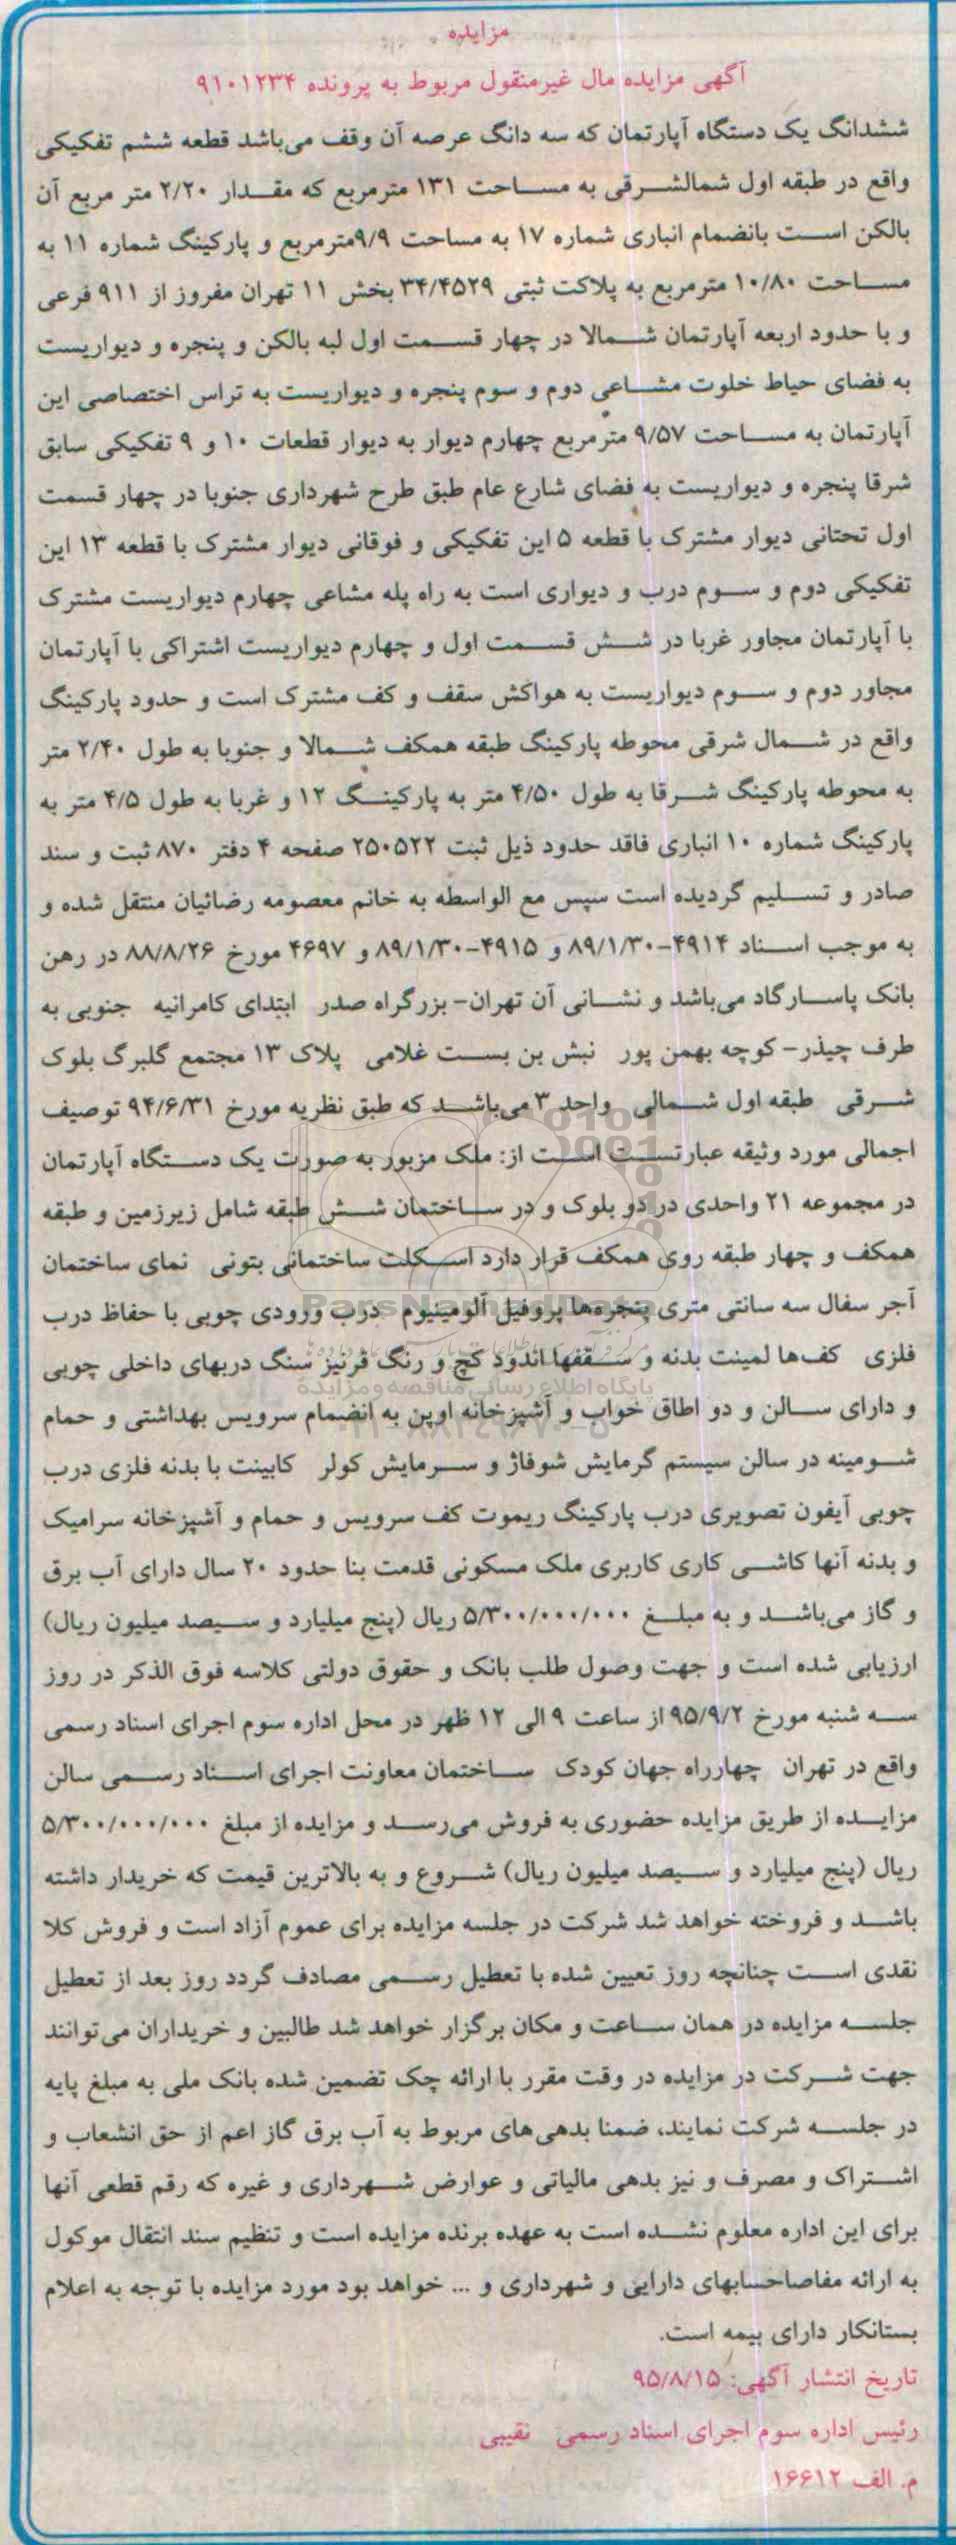 مزایده
آگهی مزایده مال غیرمنقول مربوط به پرونده ۹۱۰۱۲۳۴
ششدانگ یک دستگاه آپارتمان که سه دانگ عرصه آن وقف می‌باشد قطعه ششم تفکیکی
واقع در طبقه اول شمالشرقی به مساحت ۱۳۱ مترمربع که مقدار ۲/۲۰ متر مربع آن
بالکن است بانضمام انباری شماره ۱۷ به مساحت ۹/۹مترمربع و پارکینگ شماره ۱۱ به
مساحت ۱۰/۸۰ مترمربع به پلاکت ثبتی ۳۴/۴۵۲۹ بخش ۱۱ تهران مفروز از ۹۱۱ فرعی
و با حدود اربعه آپارتمان شمالا در چهار قسمت اول لبه بالکن و پنجره و دیواریست
به فضای حیاط خلوت مشاعی دوم و سوم پنجره و دیواریست به تراس اختصاصی این
آپارتمان به مساحت ۹/۵۷ مترمربع چهارم دیوار به دیوار قطعات ۱۰ و ۹ تفکیکی سابق
شرقا پنجره و دیواریست به فضای شارع عام طبق طرح شهرداری جنوبا در چهار قسمت
اول تحتانی دیوار مشترک با قطعه ۵ این تفکیکی و فوقانی دیوار مشترک با قطعه ۱۳ این
تفکیکی دوم و سوم درب و دیواری است به راه پله مشاعی چهارم دیواریست مشترک
با آپارتمان مجاور غربا در شش قسمت اول و چهارم دیواریست اشتراکی با آپارتمان
مجاور دوم و سوم دیواریست به هواکش سقف و کف مشترک است و حدود پارکینگ
واقع در شمال شرقی محوطه پارکینگ طبقه همکف شمالا و جنوبا به طول ۲/۴۰ متر
به محوطه پارکینگ شرقا به طول ۴/۵۰ متر به پارکینگ ۱۲ و غربا به طول ۴/۵ متر به
پارکینگ شماره ۱۰ انباری فاقد حدود ذیل ثبت ۲۵۰۵۲۲ صفحه ۴ دفتر ۸۷۰ ثبت و سند
صادر و تسلیم گردیده است سپس مع الواسطه به خانم معصومه رضائیان منتقل شده و
به موجب اسناد ۴۹۱۴-۸۹/۱/۳۰ و ۴۹۱۵-۸۹/۱/۳۰ و ۴۶۹۷ مورخ ۸۸/۸/۲۶ در رهن
بانک پاسارگاد می‌باشد و نشانی آن تهران- بزرگراه صدر ابتدای کامرانیه جنوبی به
طرف چیذر- کوچه بهمن پور نبش بن بست غلامی پلاک ۱۳ مجتمع گلبرگ بلوک
شرقی طبقه اول شمالی واحد ۳ می‌باشد که طبق نظریه مورخ ۹۴/۶/۳۱ توصیف
اجمالی مورد وثیقه عبارتست است از: ملک مزبور به صورت یک دستگاه آپارتمان
در مجموعه ۲۱ واحدی در دو بلوک و در ساختمان شش طبقه شامل زیرزمین و طبقه
همکف و چهار طبقه روی همکف قرار دارد اسکلت ساختمانی بتونی نمای ساختمان
آجر سفال سه سانتی متری پنجره‌ها پروفیل آلومینیوم درب ورودی چوبی با حفاظ درب
فلزی کف‌ها لمینت بدنه و سقفها اندود گچ و رنگ قرنیز سنگ دربهای داخلی چوبی
و دارای سالن و دو اطاق خواب و آشپزخانه اوپن به انضمام سرویس بهداشتی و حمام
شومینه در سالن سیستم گرمایش شوفاژ و سرمایش کولر کابینت با بدنه فلزی درب
چوبی آیفون تصویری درب پارکینگ ریموت کف سرویس و حمام و آشپزخانه سرامیک
و بدنه آنها کاشی کاری کاربری ملک مسکونی قدمت بنا حدود ۲۰ سال دارای آب برق
و گاز می‌باشد و به مبلغ ۵/۳۰۰/۰۰۰/۰۰۰ ریال (پنج میلیارد و سیصد میلیون ریال)
ارزیابی شده است و جهت وصول طلب بانک و حقوق دولتی کلاسه فوق الذکر در روز
سه شنبه مورخ ۹۵/۹/۲ از ساعت ۹ الی ۱۲ ظهر در محل اداره سوم اجرای اسناد رسمی
واقع در تهران چهارراه جهان کودک ساختمان معاونت اجرای اسناد رسمی سالن
مزایده از طریق مزایده حضوری به فروش می‌رسد و مزایده از مبلغ ۵/۳۰۰/۰۰۰/۰۰۰
ریال (پنج میلیارد و سیصد میلیون ریال) شروع و به بالاترین قیمت که خریدار داشته
باشد و فروخته خواهد شد شرکت در جلسه مزایده برای عموم آزاد است و فروش کلا
نقدی است چنانچه روز تعیین شده با تعطیل رسمی مصادف گردد روز بعد از تعطیل
جلسه مزایده در همان ساعت و مکان برگزار خواهد شد طالبین و خریداران می‌توانند
جهت شرکت در مزایده در وقت مقرر با ارائه چک تضمین شده بانک ملی به مبلغ پایه
در جلسه شرکت نمایند، ضمنا بدهی‌های مربوط به آب برق گاز اعم از حق انشعاب و
اشتراک و مصرف و نیز بدهی مالیاتی و عوارض شهرداری و غیره که رقم قطعی آنها
برای این اداره معلوم نشده است به عهده برنده مزایده است و تنظیم سند انتقال موکول
به ارائه مفاصاحسابهای دارایی و شهرداری و ... خواهد بود مورد مزایده با توجه به اعلام
بستانکار دارای بیمه است.
تاریخ انتشار آگهی: ۹۵/۸/۱۵
رئیس اداره سوم اجرای اسناد رسمی نقیبی
م. الف ۱۶۶۱۲